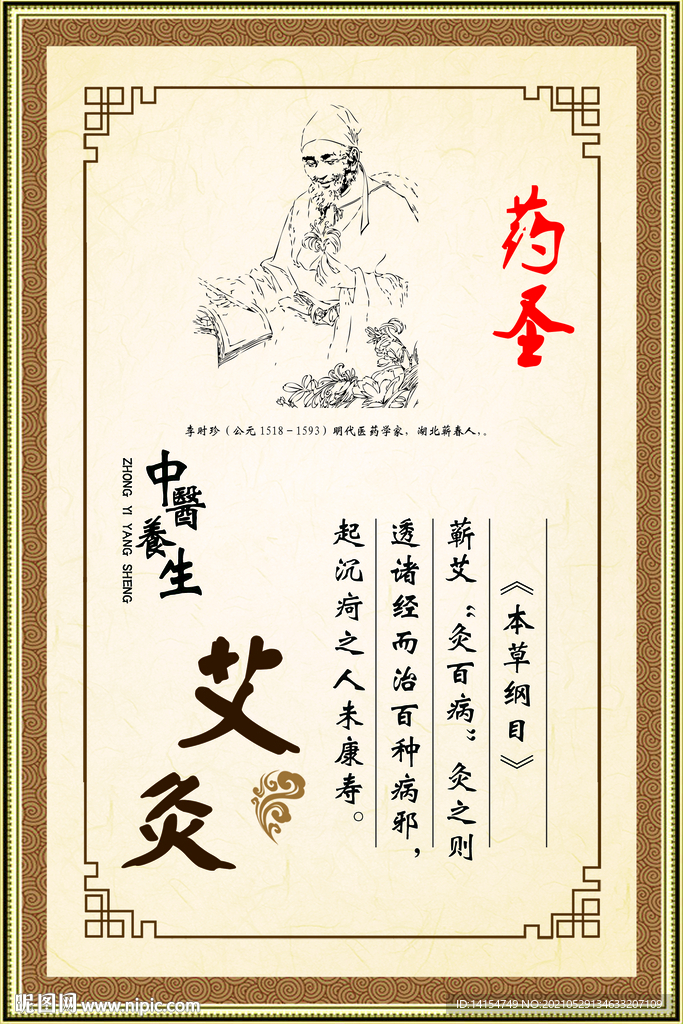 药圣
李时珍（公元1518－1593）明代医药学家，湖北蕲春人，。
中醫養生
ZHONG YI YANG SHENG
《本草纲目》
蕲艾“灸百病”灸之则
透诸经而治百种病邪，
起沉疴之人未康寿。
艾灸
昵图网 www.nipic.com
ID:14154749 NO:20210529134633207109